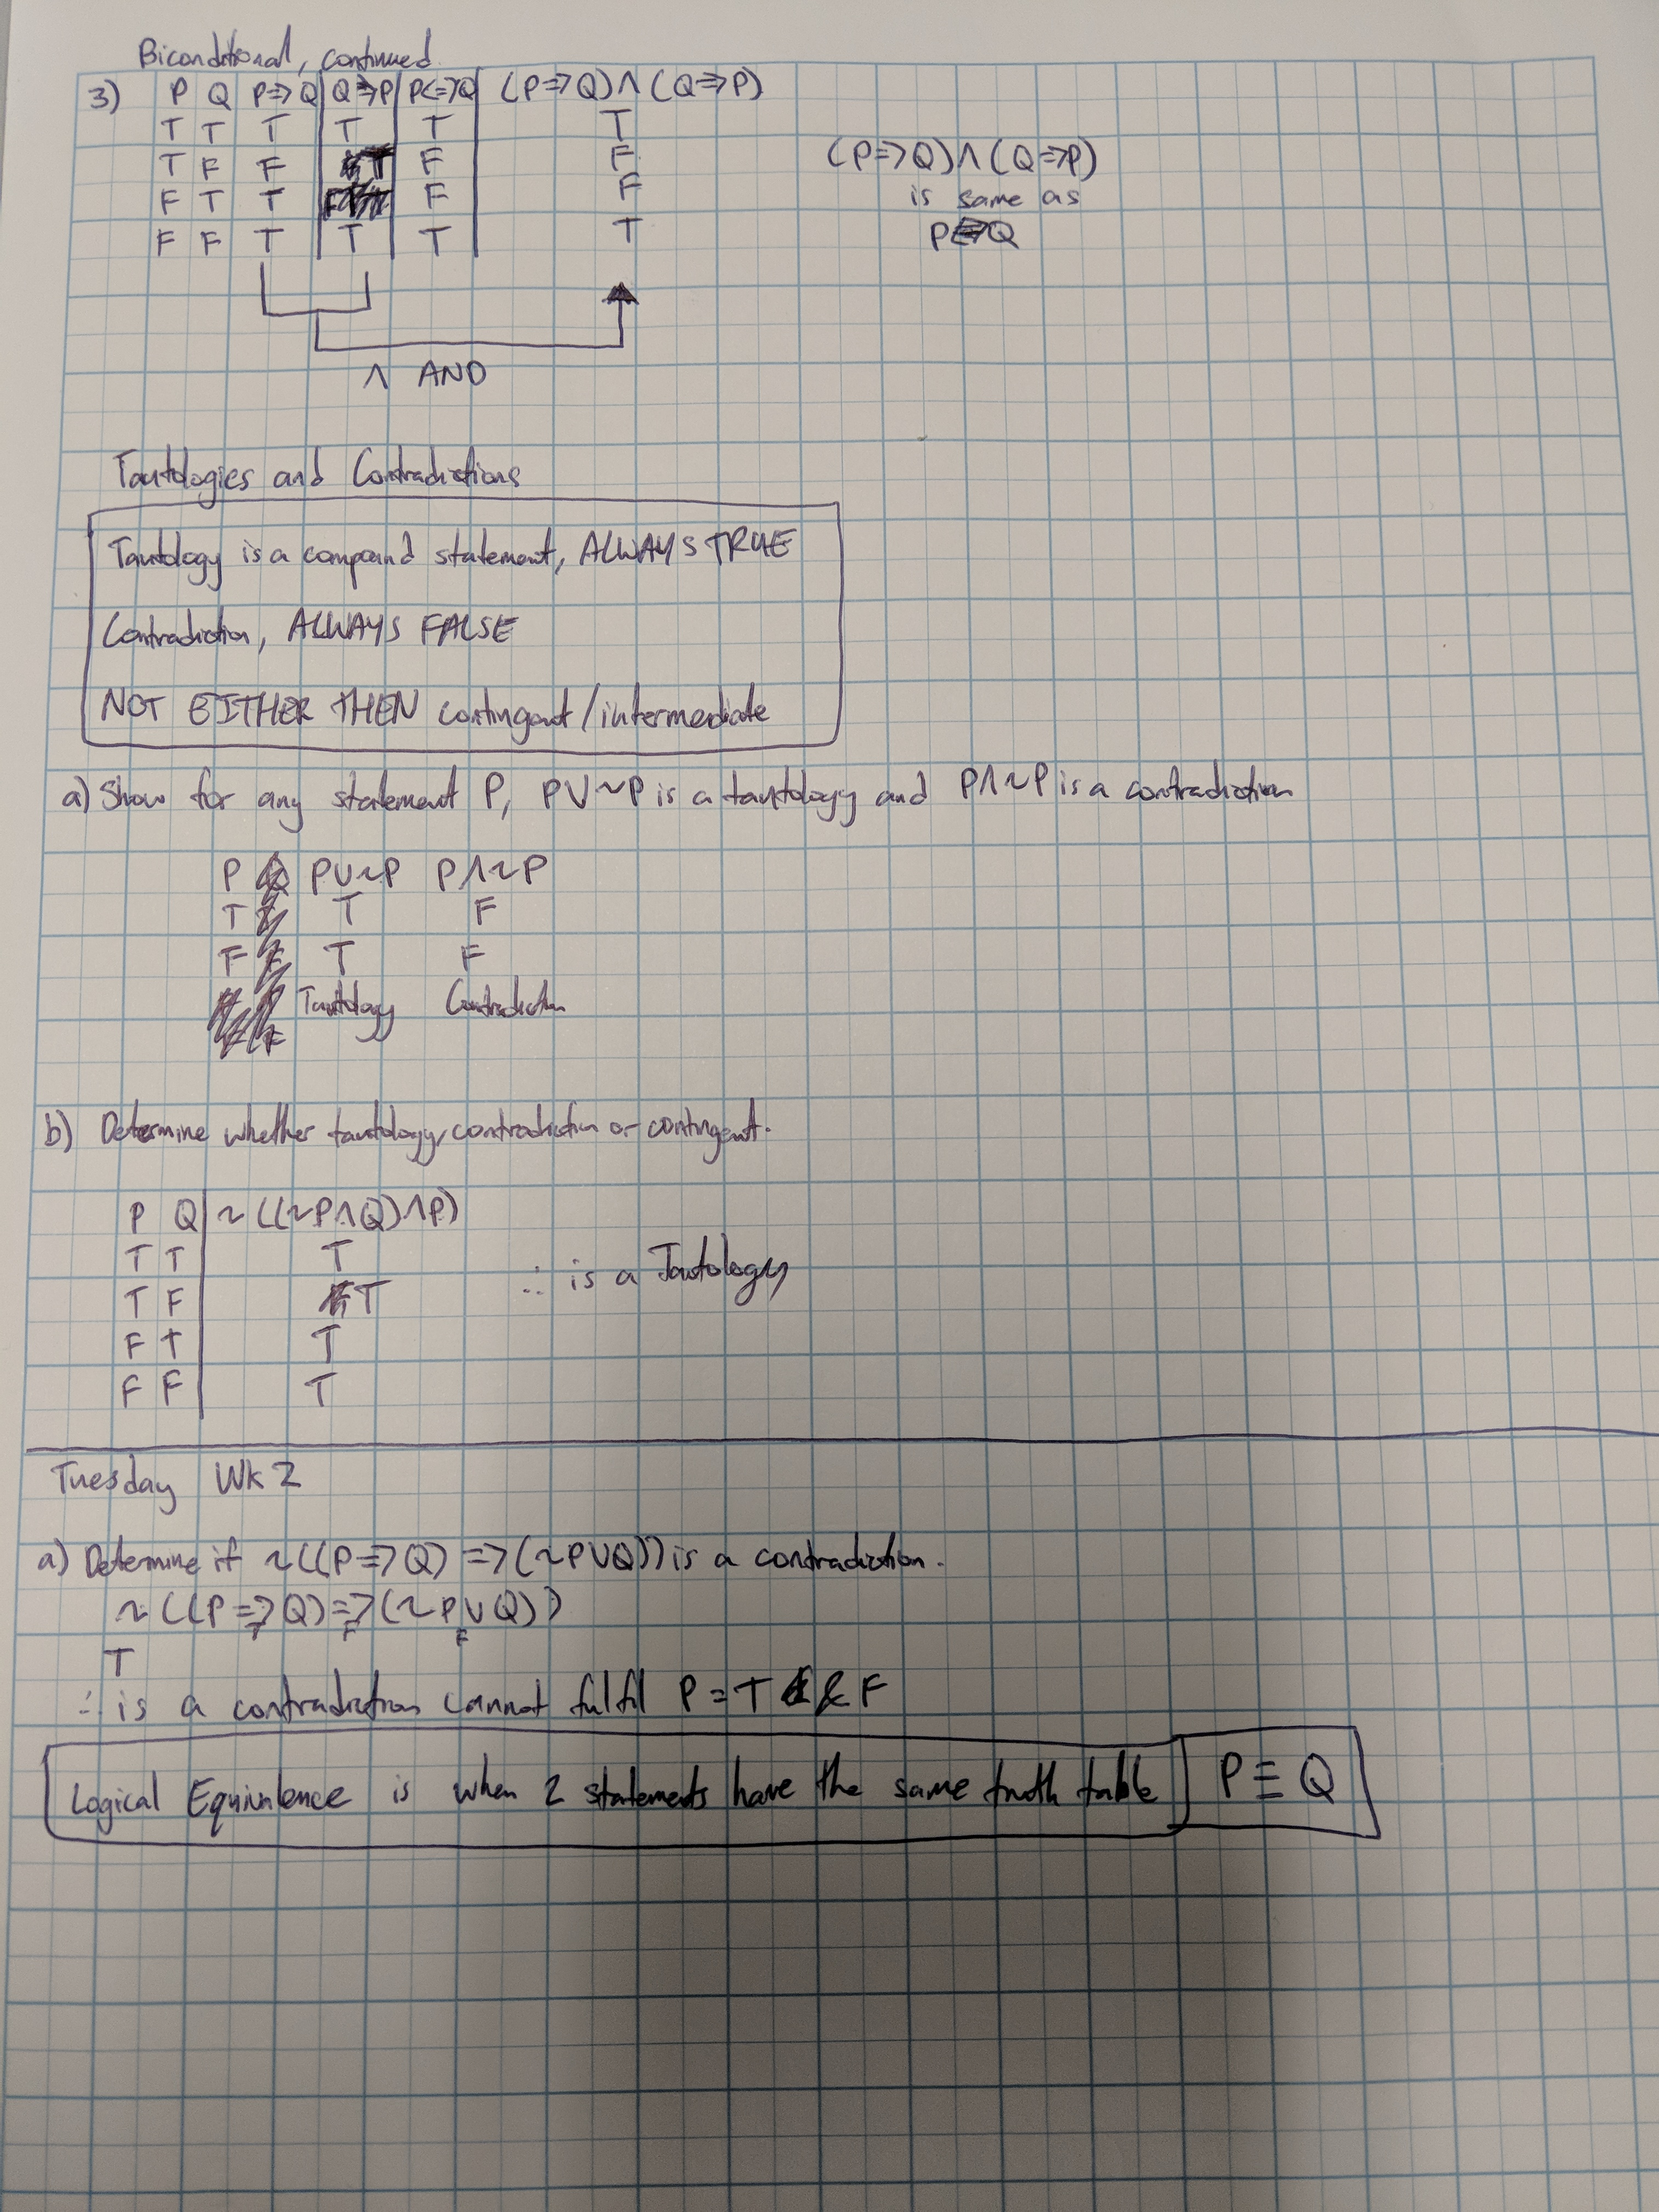 Biconditional, continued
3) P Q P=>Q Q=>P P<=>Q (P=>Q)∧(Q=>P)
T T T T T T
T F F T F F
F T T F F F
F F T T T T
(P=>Q)∧(Q=>P)
is same as
P<=>Q
∧ AND
Tautologies and Contradictions
Tautology is a compound statement, ALWAYS TRUE
Contradiction, ALWAYS FALSE
NOT EITHER THEN contingent/intermediate
a) Show for any statement P, P∨~P is a tautology and P∧~P is a contradiction
P P∨~P P∧~P
T T F
F T F
Tautology Contradiction
b) Determine whether tautology, contradiction or contingent.
P Q ~((~P∧Q)∧P)
T T T
T F T
F T T
F F T
∴ is a Tautology
Tuesday Wk 2
a) Determine if ~((P=>Q)=>(~P∨Q)) is a contradiction.
~((P=>Q)=>(~P∨Q))
T F F
T
∴ is a contradiction cannot fulfil P = T & F
Logical Equivalence is when 2 statements have the same truth table P ≡ Q